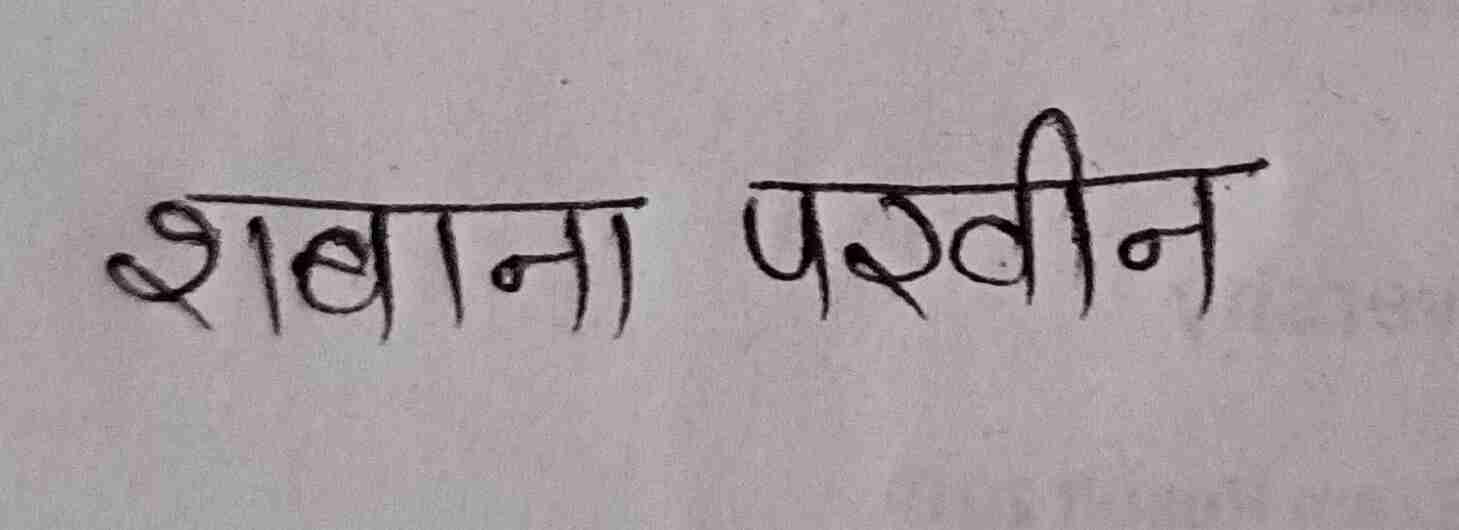 शबाना परवीन